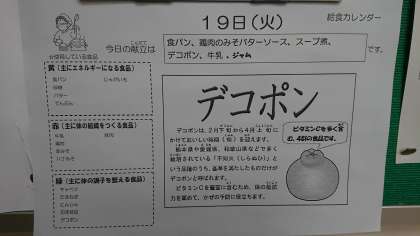 19日(火)
給食カレンダー
今日の献立は
こんだて
食パン、鶏肉のみそバターソース、スープ煮、
デコポン、牛乳、ジャム
です。
が使用している食品
黄(主にエネルギーになる食品)
食パン
じゃがいも
砂糖
バター
でんぷん
赤(主に体の組織をつくる食品)
牛乳
鶏肉
緑(主に体の調子を整える食品)
キャベツ
たまねぎ
にんじん
デコポン
デコポン
デコポンは、2月下旬から4月上旬に
かけておいしい時期(旬)を迎えます。
熊本県や愛媛県、和歌山県などで多く
栽培されている「不知火(しらぬひ)」と
いう品種のうち、基準を満たしたものだけが
デコポンと呼ばれます。
ビタミンCを豊富に含むため、体の抵抗
力を高めて、かぜの予防に役立ちます。
ビタミンCを多く含
む、緑の食品です。